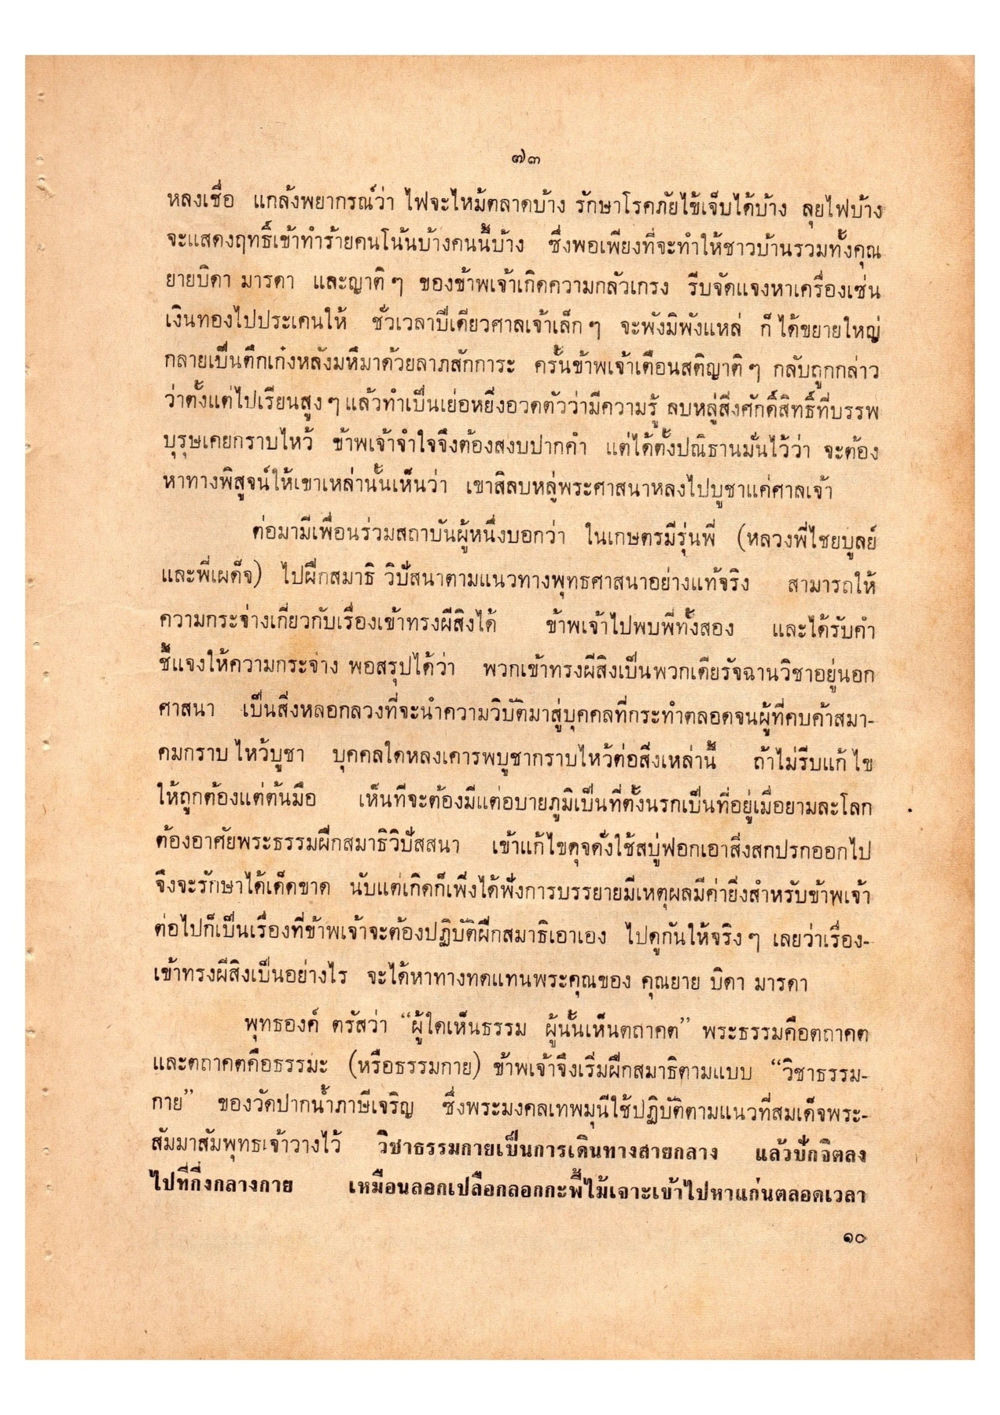 ๗๓
หลงเชื่อ แกล้งพยากรณ์ว่า ไฟจะไหม้ตลาดบ้าง รักษาโรคภัยไข้เจ็บได้บ้าง ลุยไฟบ้าง
จะแสดงฤทธิ์เข้าทำร้ายคนโน้นบ้างคนนี้บ้าง ซึ่งพอเพียงที่จะทำให้ชาวบ้านรวมทั้งคุณ
ยายบิดา มารดา และญาติ ๆ ของข้าพเจ้าเกิดความกลัวเกรง รีบจัดแจงหาเครื่องเซ่น
เงินทองไปประเคนให้ ชั่วเวลาปีเดียวศาลเจ้าเล็ก ๆ จะพังมิพังแหล่ ก็ได้ขยายใหญ่
กลายเป็นตึกเก๋งหลังมหึมาด้วยลาภสักการะ ครั้นข้าพเจ้าเตือนสติญาติ ๆ กลับถูกกล่าว
ว่าตั้งแต่ไปเรียนสูง ๆ แล้วทำเป็นเย่อหยิ่งอวดตัวว่ามีความรู้ ลบหลู่สิ่งศักดิ์สิทธิ์ที่บรรพ
บุรุษเคยกราบไหว้ ข้าพเจ้าจำใจจึงต้องสงบปากคำ แต่ได้ตั้งปณิธานมั่นไว้ว่า จะต้อง
หาทางพิสูจน์ให้เขาเหล่านั้นเห็นว่า เขาสิลบหลู่พระศาสนาหลงไปบูชาแค่ศาลเจ้า
ต่อมามีเพื่อนร่วมสถาบันผู้หนึ่งบอกว่า ในเกษตรมีรุ่นพี่ (หลวงพี่ไชยบูลย์
และพี่เผด็จ) ไปฝึกสมาธิ วิปัสนาตามแนวทางพุทธศาสนาอย่างแท้จริง สามารถให้
ความกระจ่างเกี่ยวกับเรื่องเข้าทรงผีสิงได้ ข้าพเจ้าไปพบพี่ทั้งสอง และได้รับคำ
ชี้แจงให้ความกระจ่าง พอสรุปได้ว่า พวกเข้าทรงผีสิงเป็นพวกเดียรัจฉานวิชาอยู่นอก
ศาสนา เป็นสิ่งหลอกลวงที่จะนำความวิบัติมาสู่บุคคลที่กระทำตลอดจนผู้ที่คบค้าสมา-
คมกราบ ไหว้บูชา บุคคลใดหลงเคารพบูชากราบไหว้ต่อสิ่งเหล่านี้ ถ้าไม่รีบแก้ไข
ให้ถูกต้องแต่ต้นมือ เห็นทีจะต้องมีแต่อบายภูมิเป็นที่ตั้งนรกเป็นที่อยู่เมื่อยามละโลก
ต้องอาศัยพระธรรมฝึกสมาธิวิปัสสนา เข้าแก้ไขดุจดั่งใช้สบู่ฟอกเอาสิ่งสกปรกออกไป
จึงจะรักษาได้เด็ดขาด นับแต่เกิดก็เพิ่งได้ฟังการบรรยายมีเหตุผลมีค่ายิ่งสำหรับข้าพเจ้า
ต่อไปก็เป็นเรื่องที่ข้าพเจ้าจะต้องปฏิบัติฝึกสมาธิเอาเอง ไปดูกันให้จริง ๆ เลยว่าเรื่อง-
เข้าทรงผีสิงเป็นอย่างไร จะได้หาทางทดแทนพระคุณของ คุณยาย บิดา มารดา
พุทธองค์ ตรัสว่า “ผู้ใดเห็นธรรม ผู้นั้นเห็นตถาคต” พระธรรมคือตถาคต
และตถาคตคือธรรมะ (หรือธรรมกาย) ข้าพเจ้าจึงเริ่มฝึกสมาธิตามแบบ “วิชาธรรม-
กาย” ของวัดปากน้ำภาษีเจริญ ซึ่งพระมงคลเทพมุนีใช้ปฏิบัติตามแนวที่สมเด็จพระ-
สัมมาสัมพุทธเจ้าวางไว้ วิชาธรรมกายเป็นการเดินทางสายกลาง แล้วปักจิตลง
ไปที่กึ่งกลางกาย เหมือนลอกเปลือกลอกกะพี้ไม้เจาะเข้าไปหาแก่นตลอดเวลา
๑๐